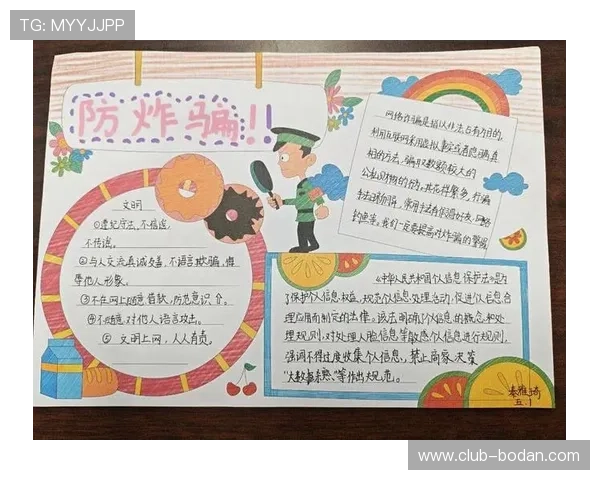 TG: MYYJJPP
防炸骗!!
文明
①遵纪守法,不信谣,
不传谣。
②与人交流真诚友善,不语言欺骗,侮
辱他人形象。
③不在网上随意
④不随意对他人语言攻击。
⑤ 文明上网,人人有责。
网络诈骗是指以非法占有为目的,
利用互联网采用虚拟事实或者隐瞒真
相的方法,骗取数额较大的
公私财物的行为。其花样繁多,行骗
手法
钓鱼等。我们一定要提高对炸骗的警惕
《中华人民共和国个人信息保护法》是为
了保护个人信息权益,规范个人信息处理活动,促进个人信息合
理应用而制定的法律。该法明确了个人信息的概念和处
理规则,对处理人脸信息等敏感个人信息进行规则,
强调不得过度收集个人信息,禁止商家
"大数据杀熟"等作出规范。
五.1
www.club-bodan.com